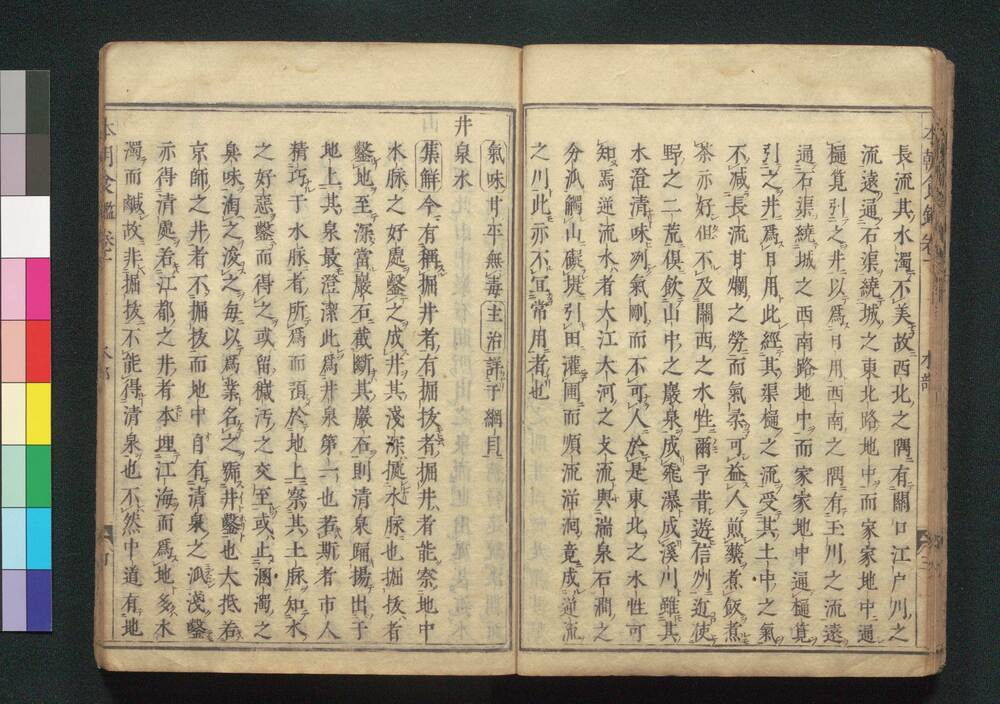 長流其水濁不美故西北之隅有關口江戸川之
流遠通石渠繞城之東北路地中而家家地中通
樋筧引之井以爲日用西南之隅有玉川之流遠
通石渠繞城之西南路地中而家家地中通樋筧
引之井爲日用此經其渠樋之流受其土中之氣
不減長流甘爛之勞而氣柔可益人煎藥煮飯煮
茶亦好但不及關西之水性爾予昔遊信州近使
野之二荒俱飲山中之巖泉成飛瀑成溪川雖其
水澄清味冽氣剛而不可人於是東北之水性可
知焉逆流水者大江大河之支流與湍泉石澗之
分派觸山礙斑引田灌圃而順流游洄竟成逆流
之川此亦不宜常用者也
氣味甘平無毒主治詳于綱目
井泉水
集解今有稱掘井者有掘拔者掘井者能察地中
水脉之好處鑿之成井其淺深從水脉也掘拔者
鑿地至深當巖石截斷其巖石則清泉踊揚出于
地上其泉最澄潔此爲井泉第一也若斯者市人
精巧于水脉者所爲而預於地上察其土脉知水
之好惡鑿而得之或留穢汚之交至或止溷濁之
臭味淘之浚之毎以爲業名之號井鑿也大抵若
京師之井者不掘拔而地中自有清泉之派淺鑿
亦得清處若江都之井者本埋江海而爲地多水
濁而鹹故非掘拔不能得清泉也不然中道有地
本朝食鑑 卷一
水部